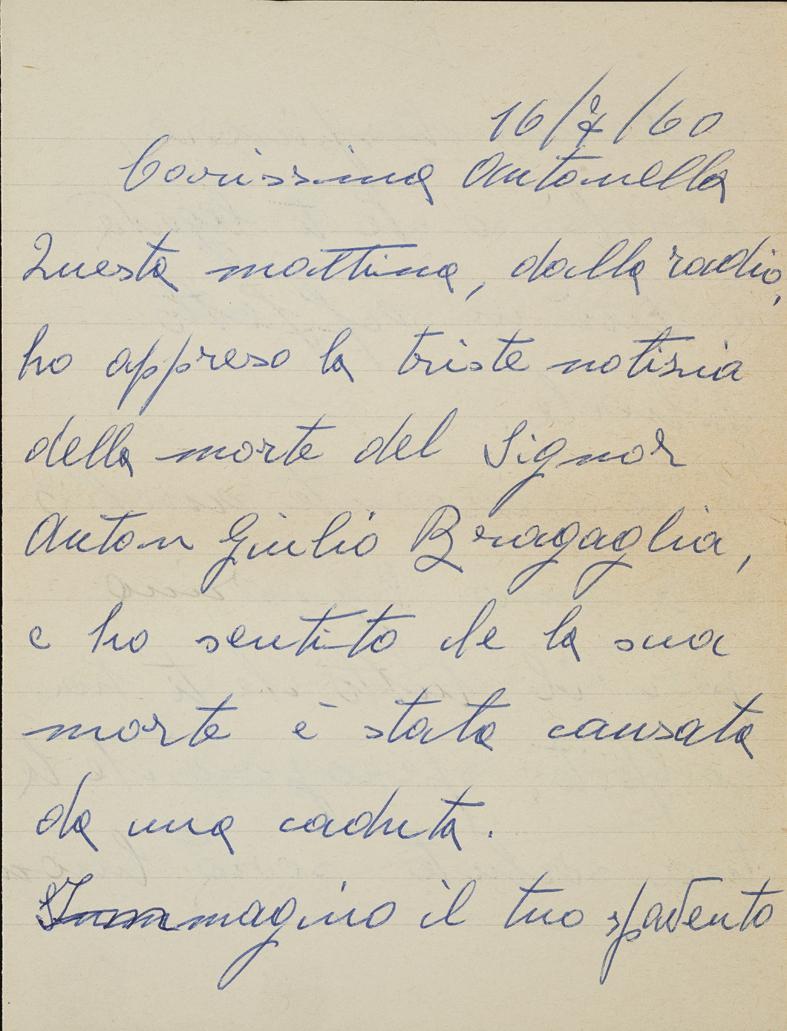 16/7/60
Carissima Antonella
Questa mattina, dalla radio,
ho appreso la triste notizia
della morte del Signor
Anton Giulio Bragaglia,
e ho sentito che la sua
morte è stata causata
da una caduta.
Immagino il tuo spavento